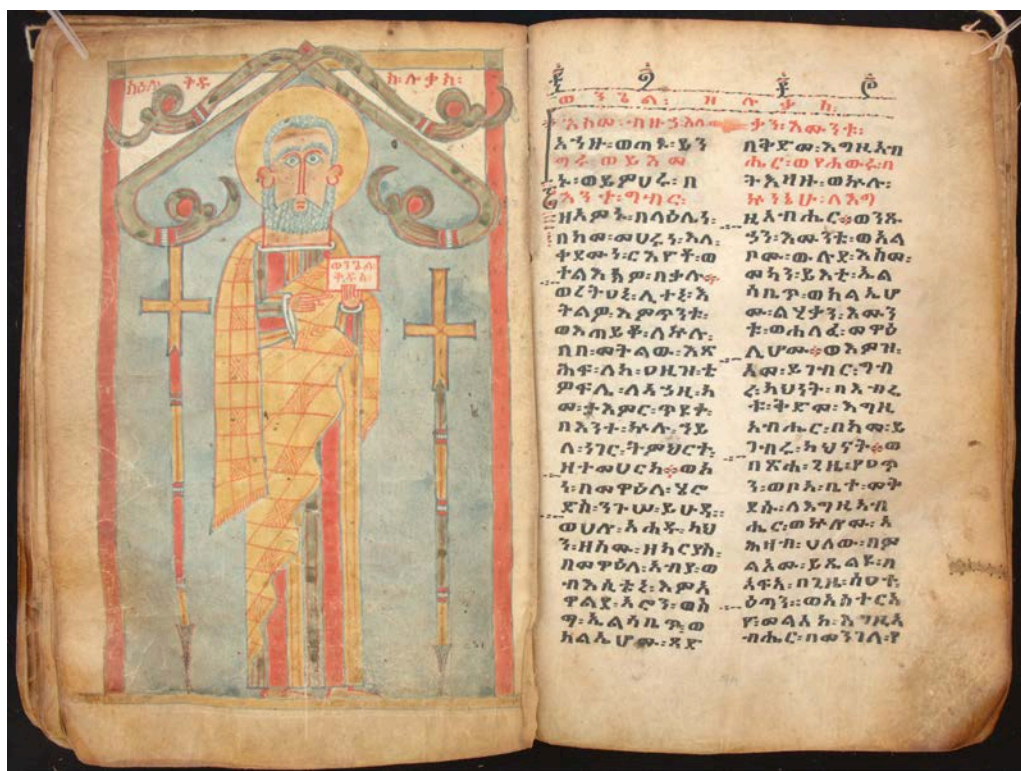 ሥዕለ፡ ቅዱ
ስ፡ ሉቃስ፡
ወንጌል፡
ቅዱስ፡
ወንጌል፡ ዘሉቃስ፡
እስመ፡ብዙኃን፡እለ
አኀዙ፡ወጠኑ፡ይን
ግሩ፡ወይእመ
ኑ፡ወይምሀሩ፡በ
እንተ፡ግብር፡
ዘአምኑ፡በላዕሌነ፡
በከመ፡መሀሩነ፡እለ፡
ቀደሙነ፡ርእዮቶ፡ወ
ተልእክዎ፡በቃሉ።
ወረትዐኒ፡ሊተኒ፡እ
ትልዎ፡እምጥንቱ፡
ወአጠይቆ፡ለኵሉ፡
በበ፡መትልው፡እጽ
ሕፍ፡ለከ፡ዐዚዝ፡ቴ
ዎፍሊ፡ለአኃዚ፡ከ
መ፡ታእምር፡ጥዩቀ፡
በእንተ፡ኵሉ፡ኀይ
ለ፡ነገር፡ትምህርት፡
ዘተመሀርከ።ወኮ
ነ፡በመዋዕለ፡ሄሮ
ድስ፡ንጉሠ፡ይሁዳ።
ወሀሎ፡አሐዱ፡ካህ
ን፡ዘስሙ፡ዘካርያስ፡
በመዋዕለ፡አብያ፡ወ
ብእሲቱኒ፡እምአ
ዋልደ፡አሮን፡ወስ
ማ፡ኤልሳቤጥ፡ወ
ክልኤሆሙ፡ጻድ
ቃን፡እሙንቱ፡
በቅድመ፡እግዚአብ
ሔር፡ወየሐውሩ፡በ
ትእዛዙ፡ወኵሉ፡
ኵነኔሁ፡ለእግ
ዚአብሔር።ወንጹ
ኃን፡እሙንቱ፡ወአል
ቦሙ፡ውሉደ፡እስመ፡
መካን፡ይእቲ፡ኤል
ሳቤጥ፡ወክልኤሆ
ሙ፡ልሂቃን፡እሙን
ቱ፡ወኀለፈ፡መዋዕ
ሊሆሙ።ወእምዝ፡
እመ፡ይገብር፡ግብ
ረ፡ክህነት፡በእብሬ
ቱ፡ቅድመ፡እግዚ
አብሔር፡በከመ፡ይ
ገብሩ፡ካህናት።ወ
በጽሐ፡ጊዜ፡የዐጥ
ን፡ወቦአ፡ቤተ፡መቅ
ደሱ፡ለእግዚአብ
ሔር፡ወኵሎሙ፡አ
ሕዛብ፡ሀለው፡በም
ልኦሙ፡ይጼልዩ፡በ
አፍአ፡በጊዜ፡ሰዐተ፡
ዕጣን።ወአስተርአ
የ፡መልአከ፡እግዚአ
ብሔር፡በመንገለ፡የ